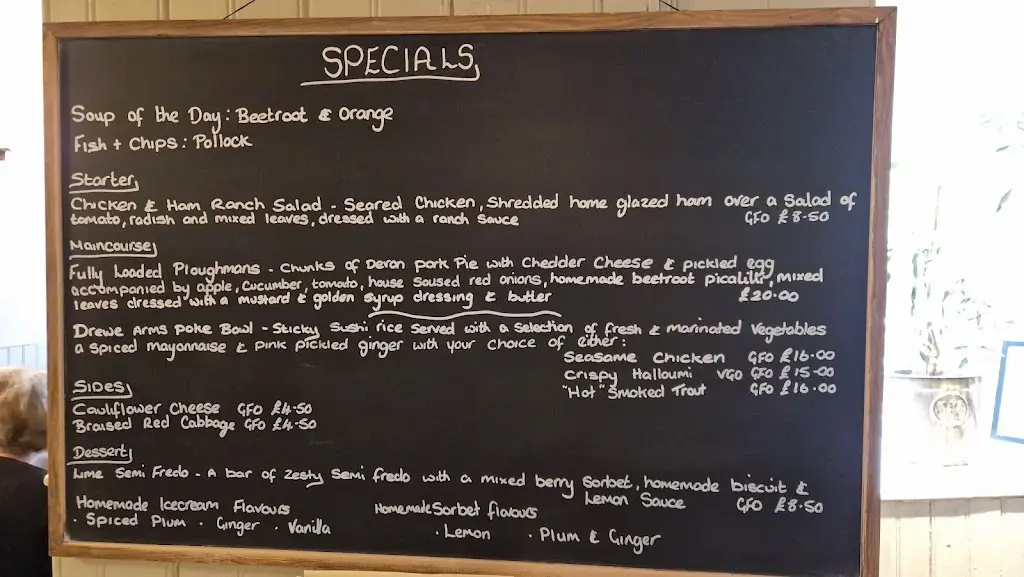 SPECIALS
Soup of the Day: Beetroot & Orange
Fish + Chips: Pollock
Starter
Chicken & Ham Ranch Salad - Seared Chicken, Shredded home glazed ham over a Salad of
tomato, radish and mixed leaves, dressed with a ranch sauce GFO £8.50
Maincourse
Fully Loaded Ploughmans - Chunks of Devon pork Pie with Chedder Cheese & pickled egg
accompanied by apple, cucumber, tomato, house soused red onions, homemade beetroot picalilli, mixed
leaves dressed with a mustard & golden syrup dressing & butter £20.00
Drewe Arms Poke Bowl - Sticky Sushi rice served with a selection of fresh & marinated vegetables
a spiced mayonnaise & pink pickled ginger with your choice of either:
Seasame Chicken GFO £16.00
Crispy Halloumi VGO GFO £15.00
"Hot" Smoked Trout GFO £16.00
Sides
Cauliflower Cheese GFO £4.50
Braised Red Cabbage GFO £4.50
Dessert
Lime Semi Fredo - A bar of zesty Semi fredo with a mixed berry sorbet, homemade biscuit &
Lemon Sauce GFO £8.50
Homemade Icecream Flavours
· Spiced Plum · Ginger · Vanilla
Homemade Sorbet flavours
· Lemon · Plum & Ginger